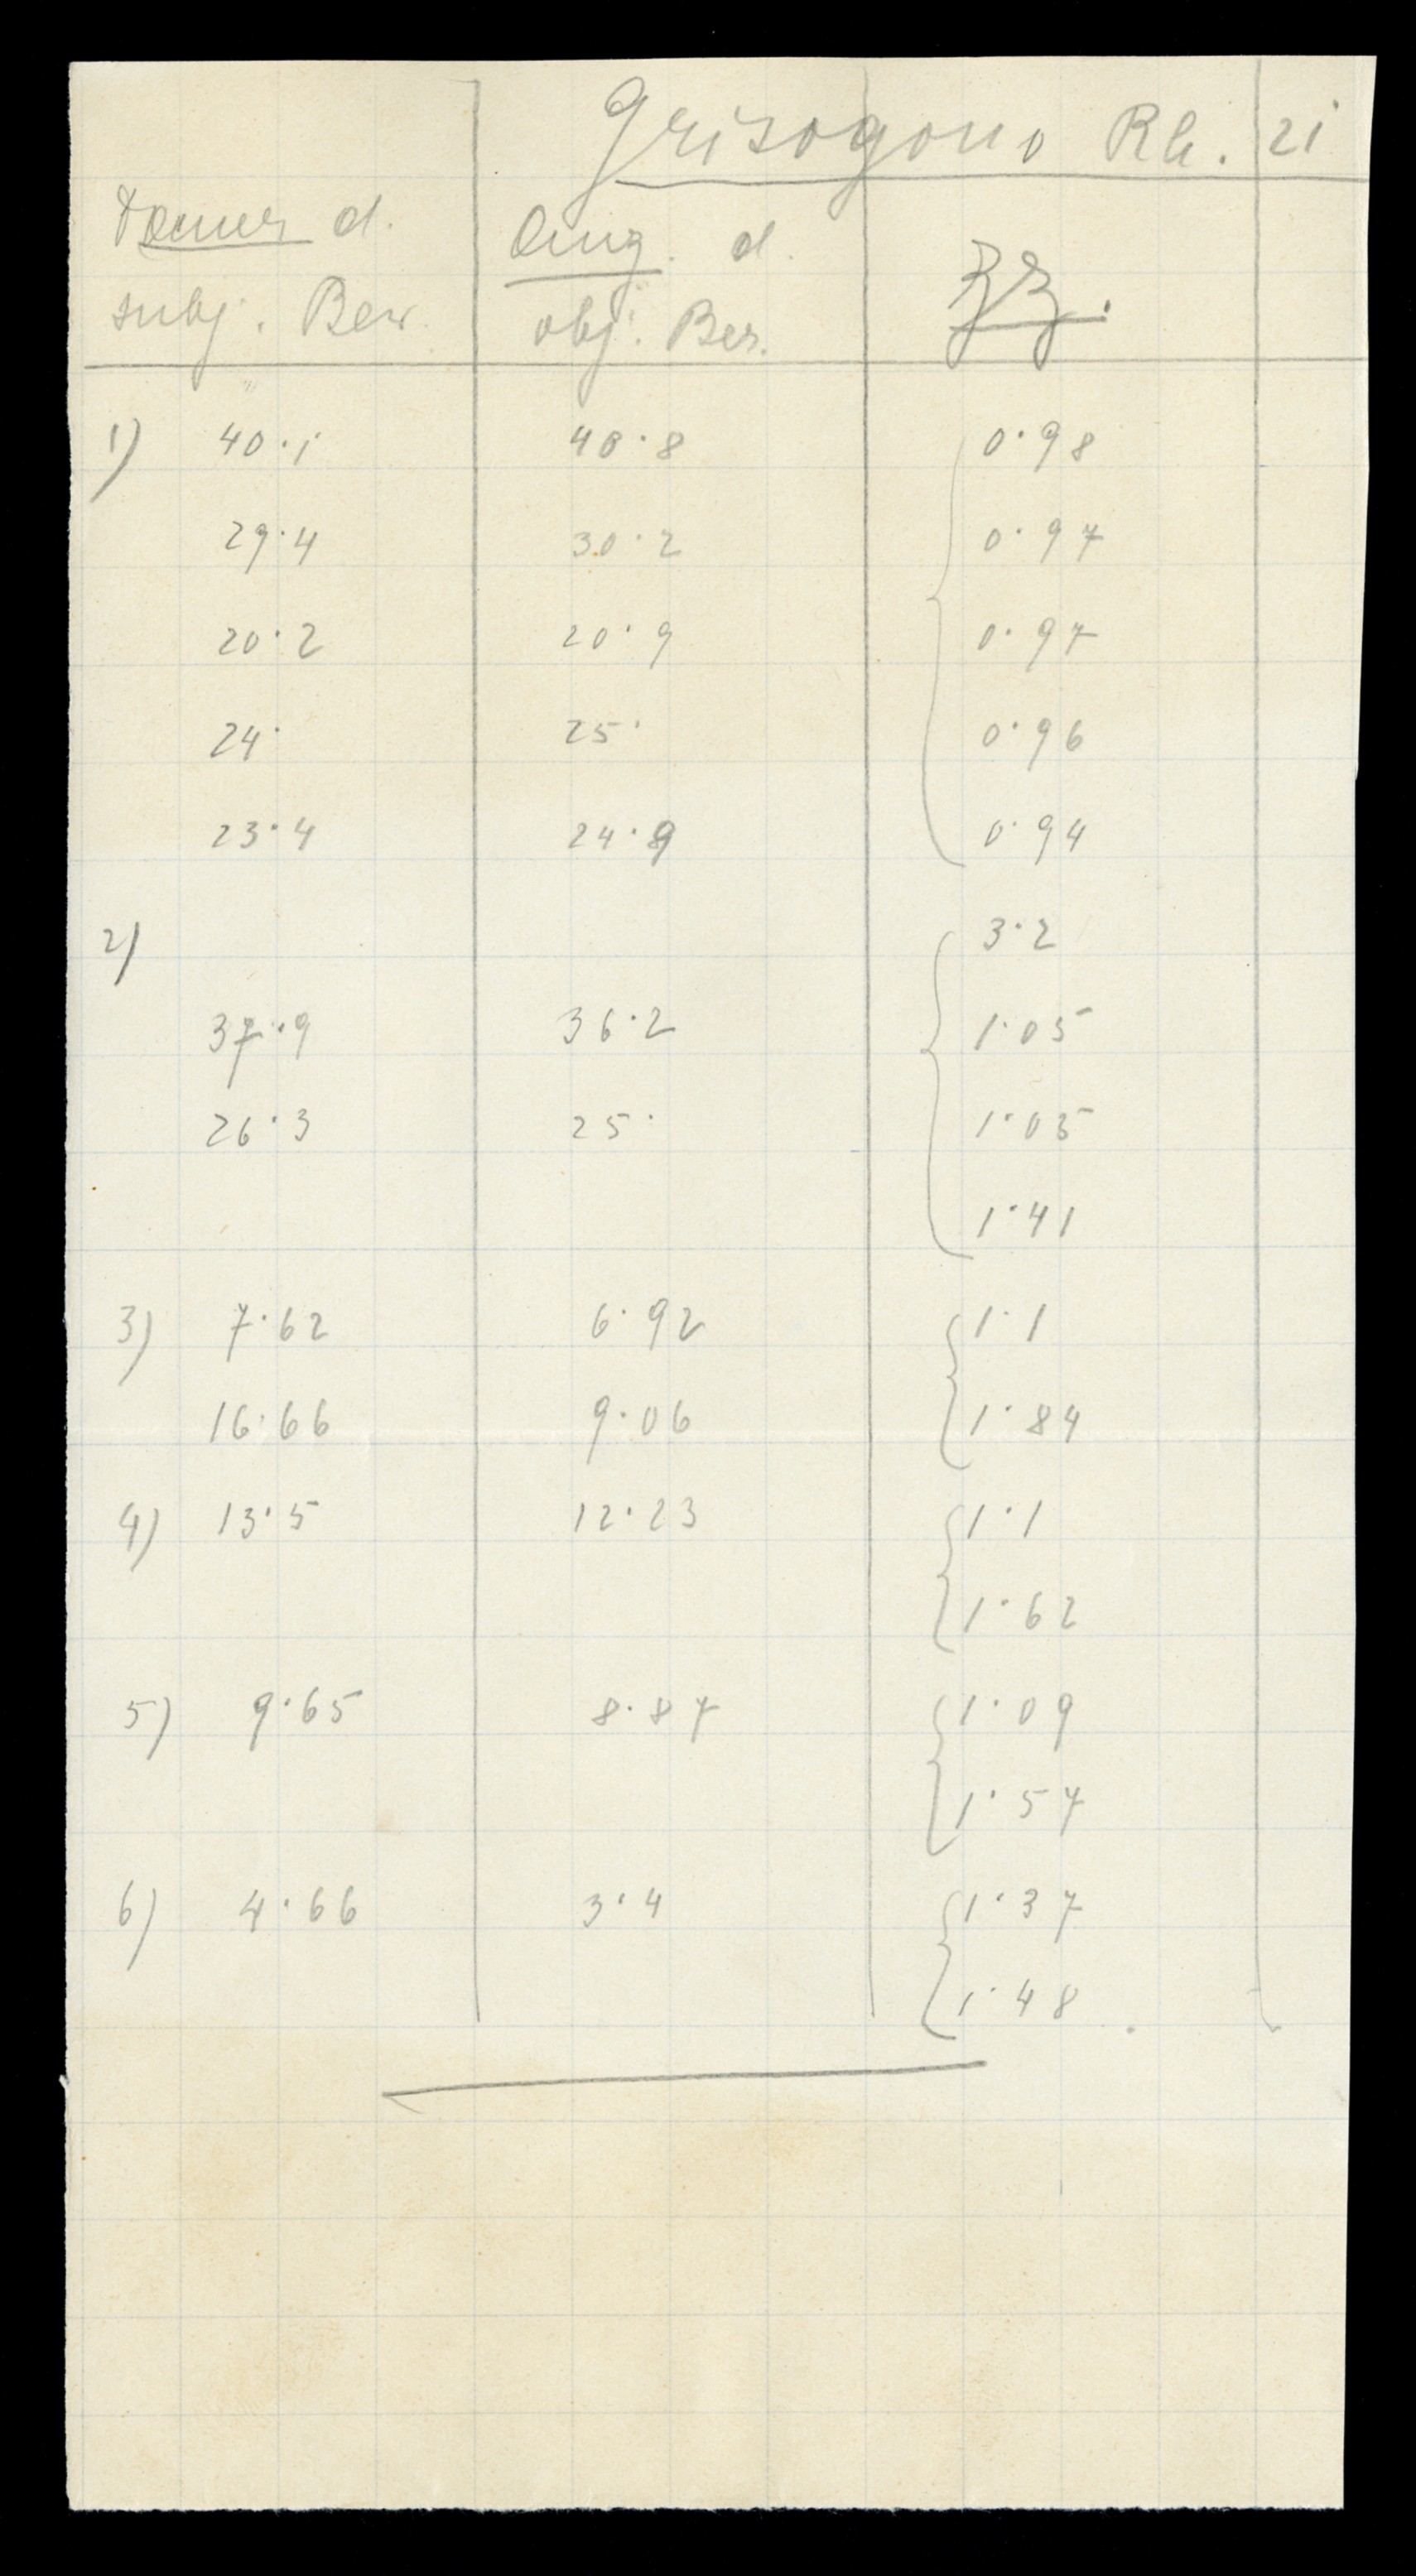 Grisogono Rh. 21
Dauer d. Umg. d. ZZ.
subj. Bew. obj. Bew.
1) 40·1 40·8 0·98
29·4 30·2 0·97
20·2 20·9 0·97
24· 25· 0·96
23·4 24·9 0·94
2) 3·2
37·9 36·2 1·05
26·3 25· 1·05
1·41
3) 7·62 6·92 1·1
16·66 9·06 1·84
4) 13·5 12·23 1·1
1·62
5) 9·65 8·87 1·09
1·57
6) 4·66 3·4 1·37
1·48